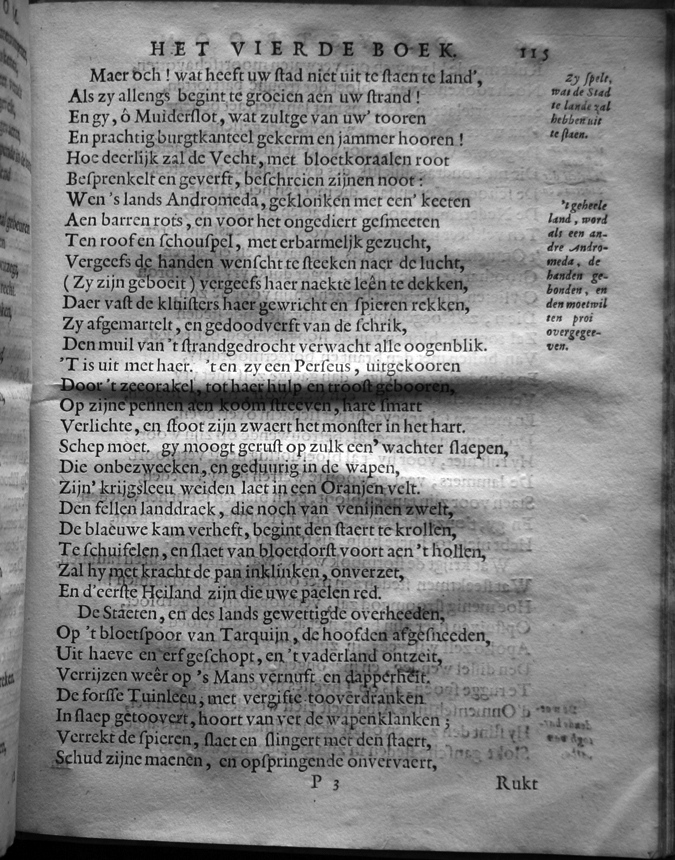 HET VIERDE BOEK. 115
Maer och! wat heeft uw stad niet uit te staen te land',
Als zy allengs begint te groeien aen uw strand!
En gy, ô Muiderslot, wat zultge van uw' tooren
En prachtig burgtkanteel gekerm en jammer hooren!
Hoe deerlijk zal de Vecht, met bloetkoraalen root
Besprenkelt en geverft, beschreien zijnen noot:
Wen 's lands Andromeda, geklonken met een' keeten
Aen barren rots, en voor het ongediert gesmeeten
Ten roof en schouspel, met erbarmeljk gezucht,
Vergeefs de handen wenscht te steeken naer de lucht,
(Zy zijn geboeit) vergeefs haer naekte leên te dekken,
Daer vast de kluisters haer gewricht en spieren rekken,
Zy afgemartelt, en gedoodverft van de schrik,
Den muil van 't strandgedrocht verwacht alle oogenblik.
'T is uit met haer. 't en zy een Perseus, uitgekooren
Door 't zeeorakel, tot haer hulp en troost gebooren,
Op zijne pennen aen koom streeven, hare smart
Verlichte, en stoot zijn zwaert het monster in het hart.
Schep moet. gy moogt gerust op zulk een' wachter slaepen,
Die onbezweeken, en geduurig in de wapen,
Zijn' krijgsleeu weiden laet in een Oranjen velt.
Den fellen landdraek, die noch van venijnen zwelt,
De blaeuwe kam verheft, begint den staert te krollen,
Te schuifelen, en slaet van bloetdorst voort aen 't hollen,
Zal hy met kracht de pan inklinken, onverzet,
En d'eerste Heiland zijn die uwe paelen red.
De Staeten, en des lands gewettigde overheeden,
Op 't bloetspoor van Tarquijn, de hoofden afgesneeden,
Uit haeve en erf geschopt, en 't vaderland ontzeit,
Verrijzen weêr op 's Mans vernuft en dapperheit.
De forsse Tuinleeu, met vergifte tooverdranken
In slaep getoovert, hoort van ver de wapenklanken;
Verrekt de spieren, slaet en slingert met den staert,
Schud zijne maenen, en opspringende onvervaert,
P 3 Rukt
Zy spelt,
wat de Stad
te lande zal
hebben uit
te staen.
't geheele
land, word
als een an-
dre Andro-
meda, de
handen ge-
bonden, en
den moetwil
ten proi
overgegee-
ven.